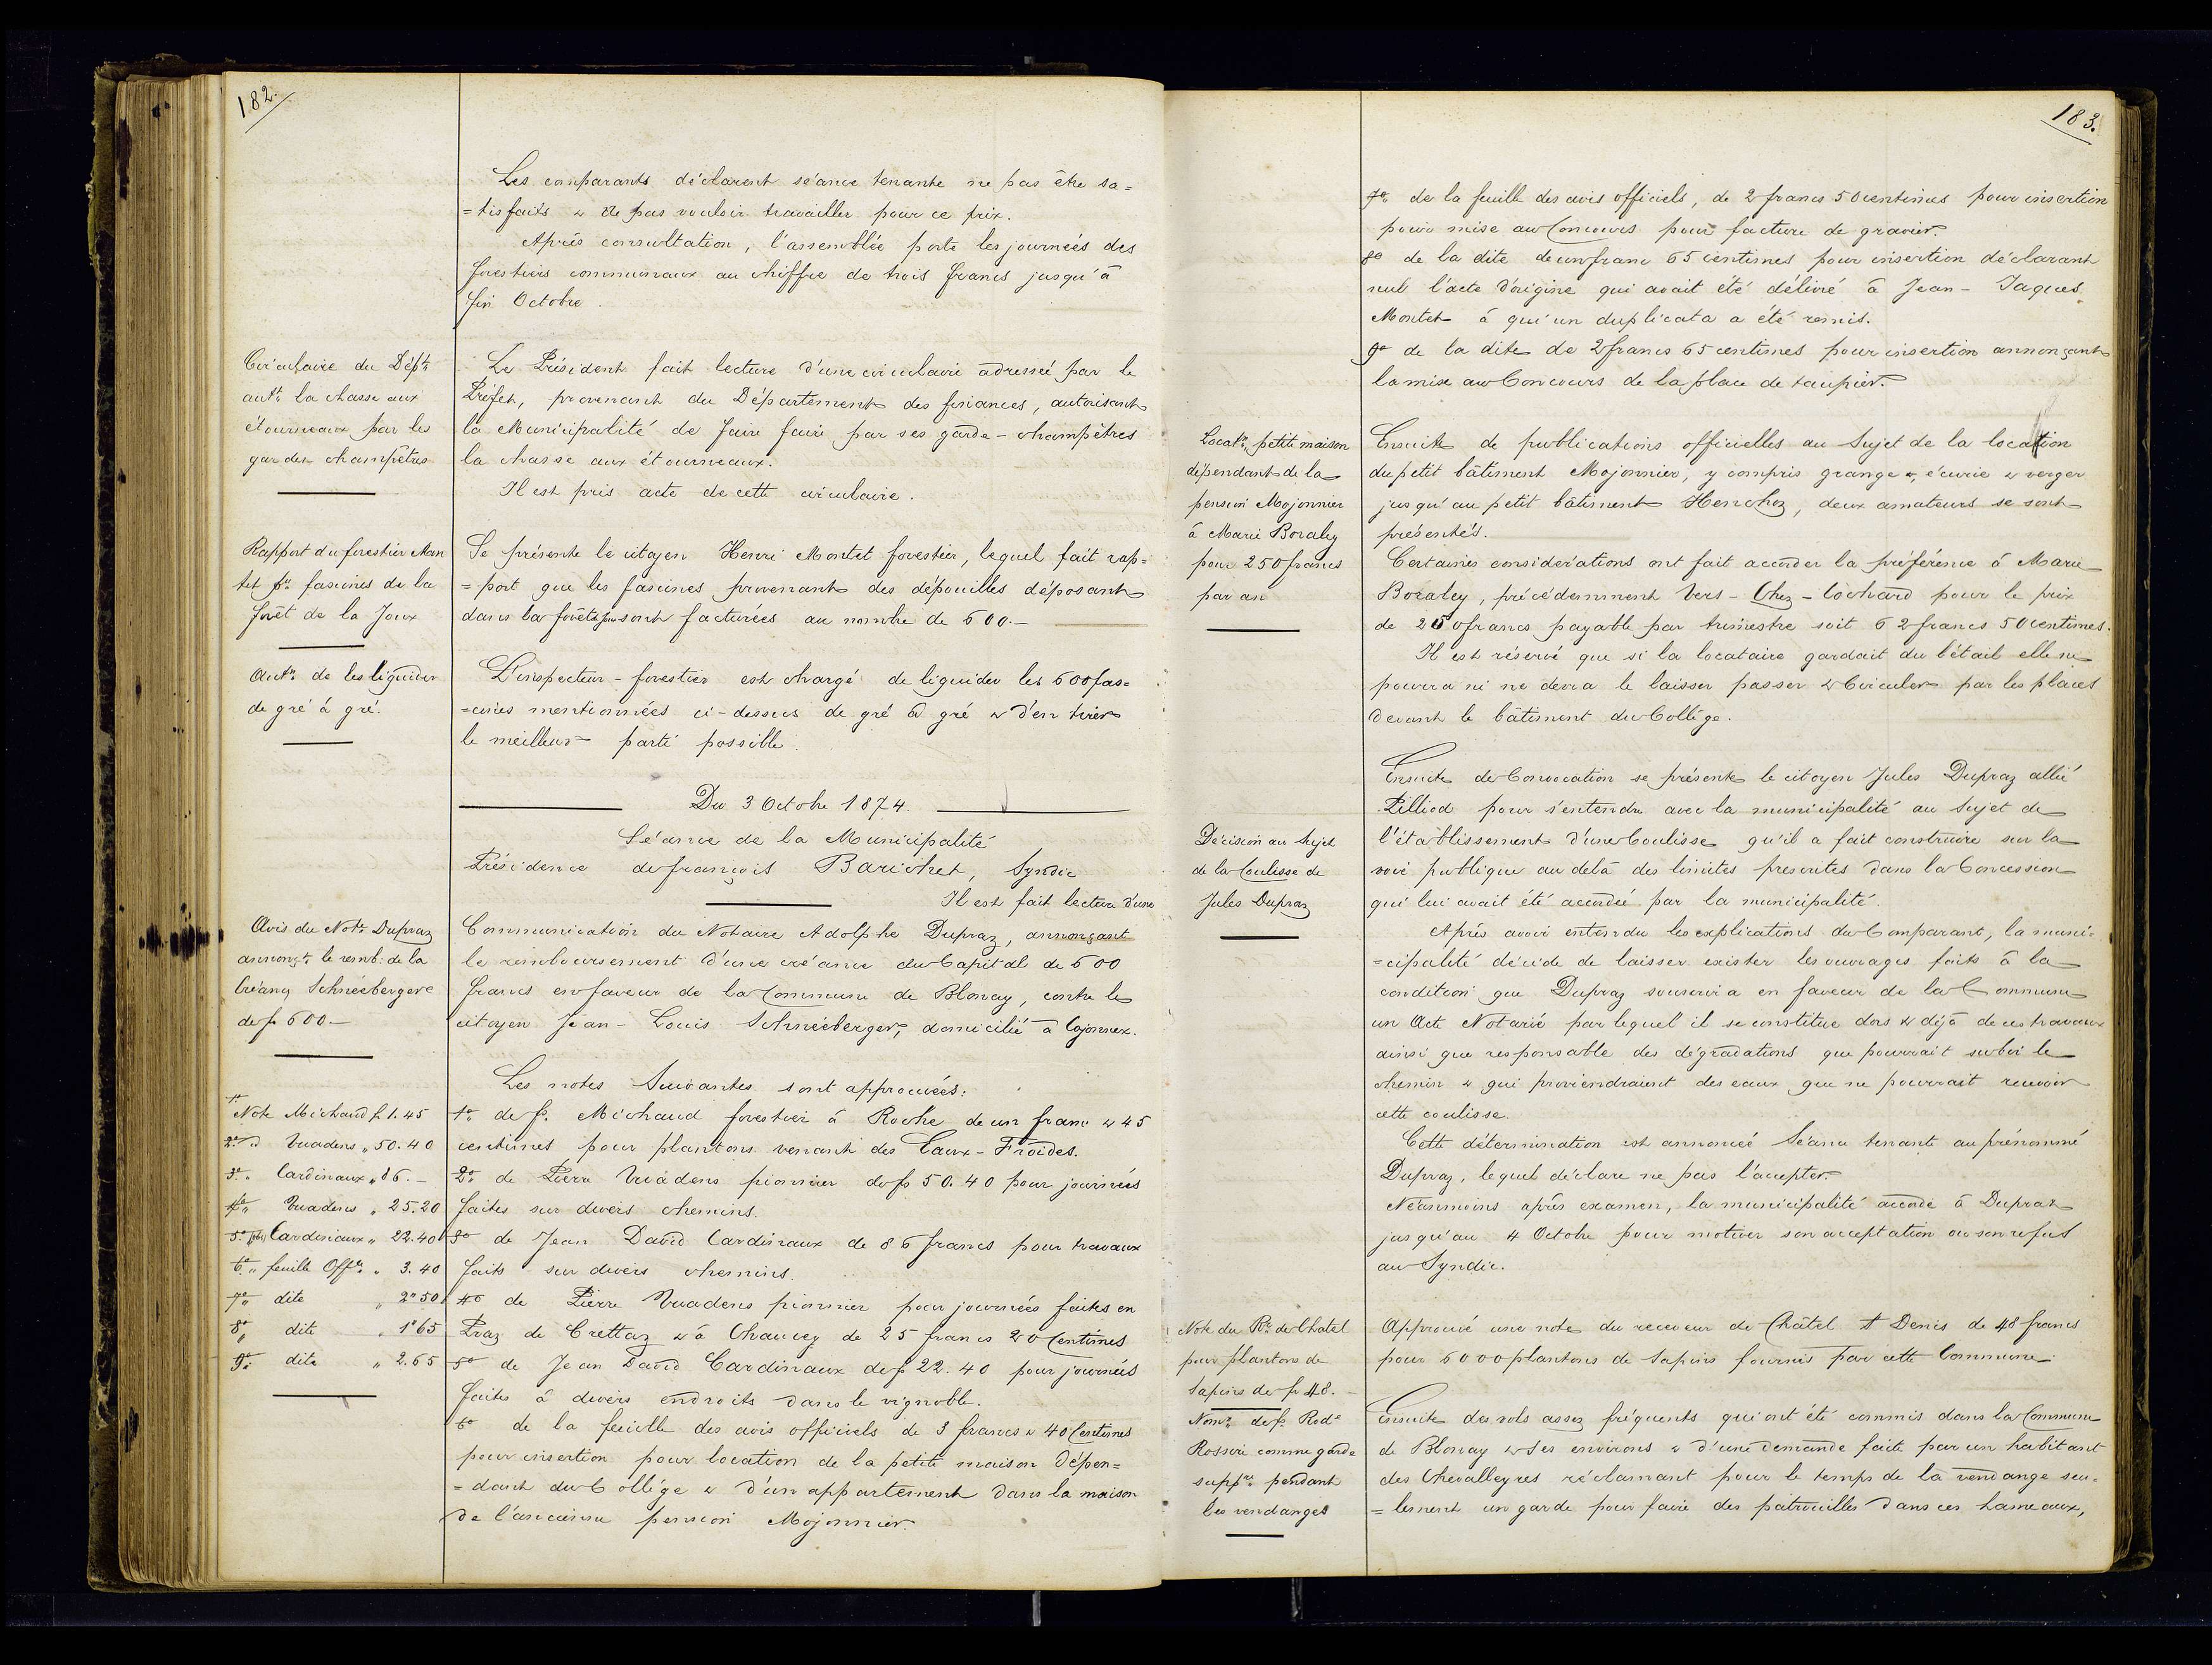 182.
Les comparants déclarent séance tenante ne pas être sa=
=tisfaits & de pas vouloir travailler pour ce prix.
Après consultation, l'assemblée porte les journées des
forestiers communaux au chiffre de trois francs jusqu'à
fin Octobre.
Circulaire du Dépt.
autt. la chasse aux
étourneaux par les
gardes champêtres
Le Président fait lecture d'une circulaire adressée par le
Préfet, provenant du Département des finances, autorisant
la Municipalité de faire faire par ses garde-champêtres
la chasse aux étourneaux.
Il est pris acte de cette circulaire.
Rapport du forestier Mon
tet pr. fascines de la
forêt de la Joux
Se présente le citoyen Henri Montet forestier, lequel fait rap=
=port que les fascines provenant des dépouilles déposant
dans la forêt sont facturées au nombre de 600.—
Autn. de les liquider
de gré à gré.
L'inspecteur-forestier est chargé de liquider les 600 fas=
=cines mentionnées ci-dessus de gré à gré & d'en tirer
le meilleur parti possible.
Du 3 Octobre 1874.
Séance de la Municipalité
Présidence de françois Barichet, Syndic
Il est fait lecture d'une
Avis du Notr. Dupraz
annonçt. le remb: de la
Créance Schnéeberger
de fr 600.—
Communication du Notaire Adolphe Dupraz, annonçant
le remboursement d'une créance du Capital de 600
francs en faveur de la Commune de Blonay, contre le
citoyen Jean-Louis Schnéeberger, domicilié à Cojonnex.
Les notes Suivantes sont approuvées:
1o Note Michaud fr 1.45
2o d Vuadens " 50.40
3o " Cardinaux " 86.—
4o " Vuadens " 25.20
5o Cardinaux " 22.40
6o " feuille Offle. " 3.40
7o " dite " 2"50
8o " dite " 1"65
9o " dite " 2.65
1o de fs. Michaud forestier à Roche de un franc & 45
centimes pour plantons venant des Eaux-Froides.
2o de Pierre Vuadens pionnier de fr 50.40 pour journées
faites sur divers chemins.
3o de Jean David Cardinaux de 86 francs pour travaux
faits sur divers chemins.
4o de Pierre Vuadens pionnier pour journées faites en
Praz de Crettaz & à Chaucey de 25 francs 20 Centimes
5o de Jean David Cardinaux de fr 22.40 pour journées
faites à divers endroits dans le vignoble.
6o de la feuille des avis officiels de 3 francs & 40 Centimes
pour insertion pour location de la petite maison dépen=
=dant du Collège & d'un appartement dans la maison
de l'ancienne pension Mojonnier.
183.
7o de la feuille des avis officiels, de 2 francs 50 centimes pour insertion
pour mise au Concours pour facture de gravier.
8o de la dite de un franc 65 centimes pour insertion déclarant
nul l'acte d'origine qui avait été délivré à Jean-Jaques
Montet à qui un duplicata a été remis.
9o de la dite de 2 francs 65 centimes pour insertion annonçant
la mise au Concours de la place de taupier.
Locatn. petite maison
dépendant de la
pension Mojonnier
à Marie Boraley
pour 250 francs
par an
Ensuite de publications officielles au Sujet de la location
du petit bâtiment Mojonnier, y compris grange, écurie & verger
jusqu'au petit bâtiment Henchoz, deux amateurs se sont
présentés.
Certaines considérations ont fait accorder la préférence à Marie
Boraley, précédemment Vers-Chez-Cochard pour le prix
de 250 francs payable par trimestre soit 62 francs 50 centimes.
Il est réservé que si la locataire gardait du bétail elle ne
pourra ni ne devra le laisser passer & Circuler par les places
devant le bâtiment du Collège.
Décision au Sujet
de la Coulisse de
Jules Dupraz
Ensuite de Convocation se présente le citoyen Jules Dupraz allié
Pilliod pour s'entendre avec la municipalité au Sujet de
l'établissement d'une Coulisse qu'il a fait construire sur la
voie publique au delà des limites prescrites dans la Concession
qui lui avait été accordée par la municipalité.
Après avoir entendu les explications du Comparant, la muni=
=cipalité décide de laisser exister les ouvrages faits à la
condition que Dupraz souscrira en faveur de la Commune
un Acte Notarié par lequel il se constitue dors & déjà de ces travaux
ainsi que responsable des dégradations que pourrait subir le
chemin & qui proviendraient des eaux que ne pourrait recevoir
cette coulisse.
Cette détermination est annoncée Séance tenante au prénommé
Dupraz, lequel déclare ne pas l'accepter.
Néanmoins après examen, la municipalité accorde à Dupraz
jusqu'au 4 Octobre pour motiver son acceptation ou son refus
au Syndic.
Note du Rr. de Chatel
pour plantons de
Sapins de fr 48.—
Approuvé une note du receveur de Châtel St Denis de 48 francs
pour 6000 plantons de Sapins fournis par cette Commune.
Nomn. de fs. Rode
Rosserie comme garde
suppre. pendant
les vendanges
Ensuite des vols assez fréquents qui ont été commis dans la Commune
de Blonay & Ses environs & d'une demande faite par un habitant
des Chevalleyres réclamant pour le temps de la vendange seu=
=lement un garde pour faire des patrouilles dans ces hameaux,